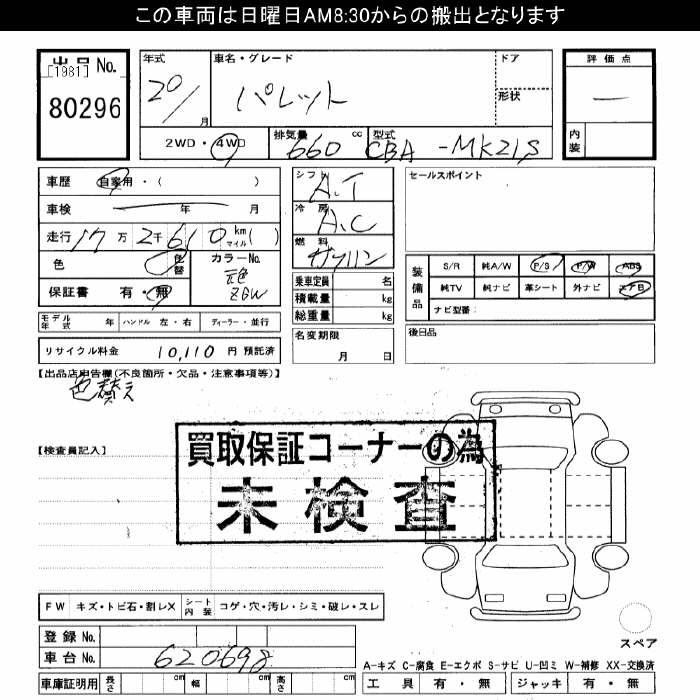 この車両は日曜日AM8:30からの搬出となります
出品 No.
[1981]
80296
年式
20/
月
車名・グレード
パレット
ドア
形状
評価点
—
内装
2WD・4WD
排気量
660 cc
型式
CBA-MK21S
車歴 自家用・( )
車検 年 月
走行 17万 2千 610 km マイル ( )
色
色替
カラーNo.
元色
ZGW
保証書 有・無
シフト
A.T
冷房
A.C
燃料
ガソリン
乗車定員 名
積載量 kg
総重量 kg
セールスポイント
装備品
S/R 純A/W P/S P/W ABS
純TV 純ナビ 革シート 外ナビ エアB
ナビ型番:
モデル年式 年 ハンドル 左・右 ディーラー・並行
名変期限
月 日
後日品
リサイクル料金 10,110 円 預託済
【出品店申告欄(不良箇所・欠品・注意事項等)】
色替え
買取保証コーナーの為
未検査
【検査員記入】
FW キズ・トビ石・割レX シート内装 コゲ・穴・汚レ・シミ・破レ・スレ
登録 No.
車台 No. 620698
スペア
A-キズ C-腐食 E-エクボ S-サビ U-凹ミ W-補修 XX-交換済
車庫証明用 長さ cm 幅 cm 高さ cm
工具 有・無 ジャッキ 有・無